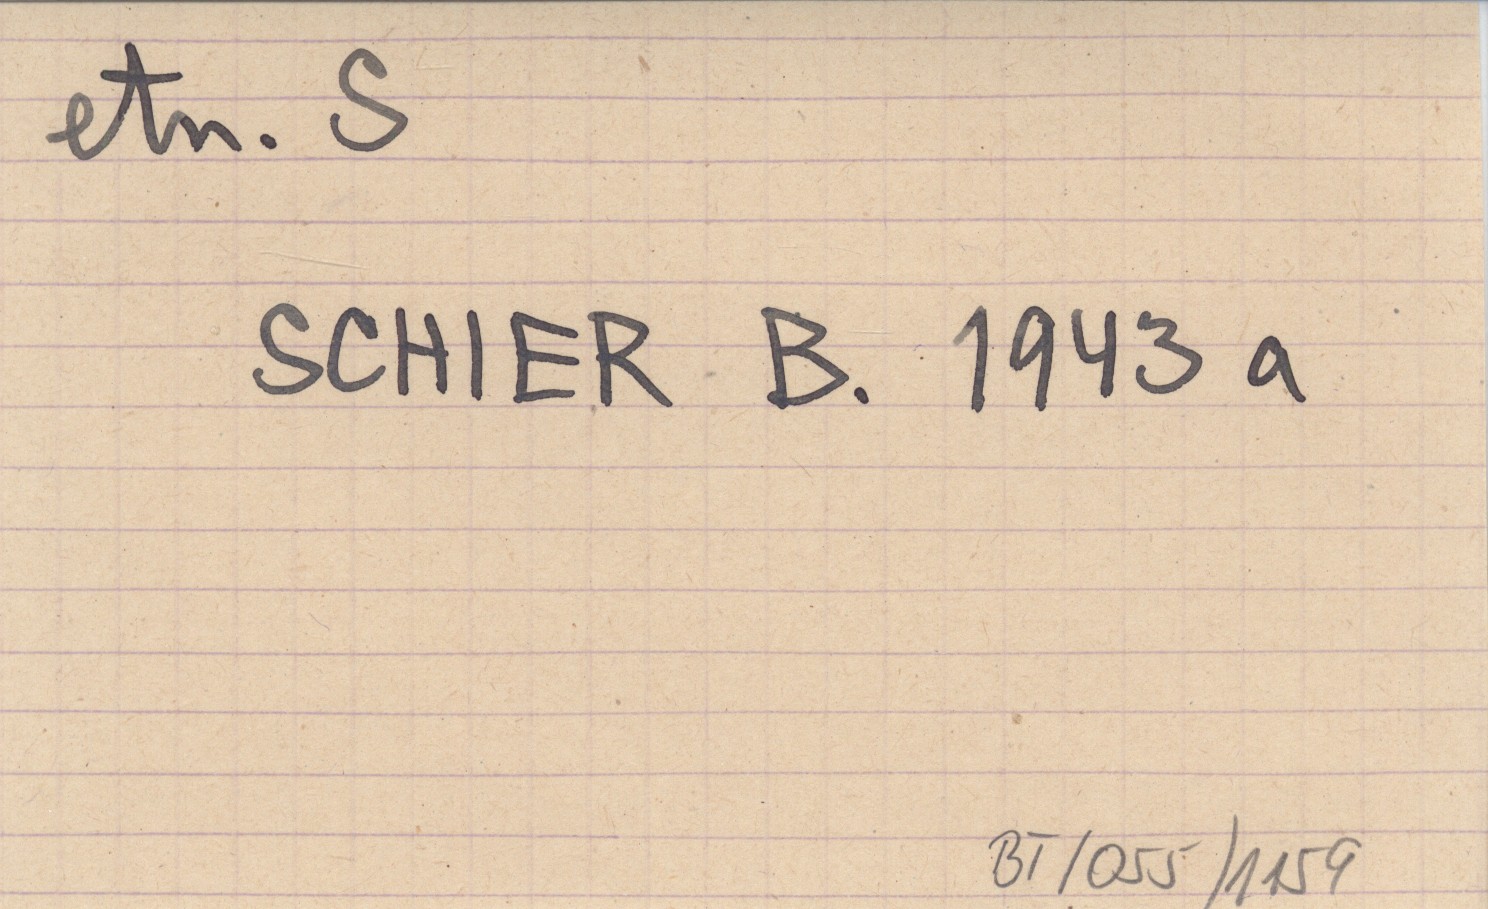 etn. S
SCHIER B. 1943 a
BT/055/1159